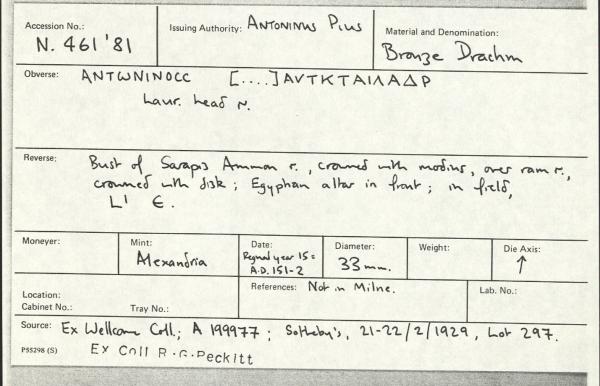 Accession No.: Issuing Authority: ANTONINUS PIUS Material and Denomination:
N. 461 '81 Bronze Drachm
Obverse: ANTωNINOCC [....]AVTKTAIΛAΔP
Laur. head r.
Reverse: Bust of Sarapis Ammon r., crowned with modius, over ram r.,
crowned with disk; Egyptian altar in front; in field,
L' Є.
Moneyer: Mint: Date: Diameter: Weight: Die Axis:
Alexandria Regnal year 15 = 33 mm. ↑
A.D. 151-2
Location: References: Not in Milne. Lab. No.:
Cabinet No.: Tray No.:
Source: Ex Wellcome Coll.; A 199977; Sotheby's, 21-22/2/1929, Lot 297.
P55298 (S) Ex Coll R.G. Peckitt